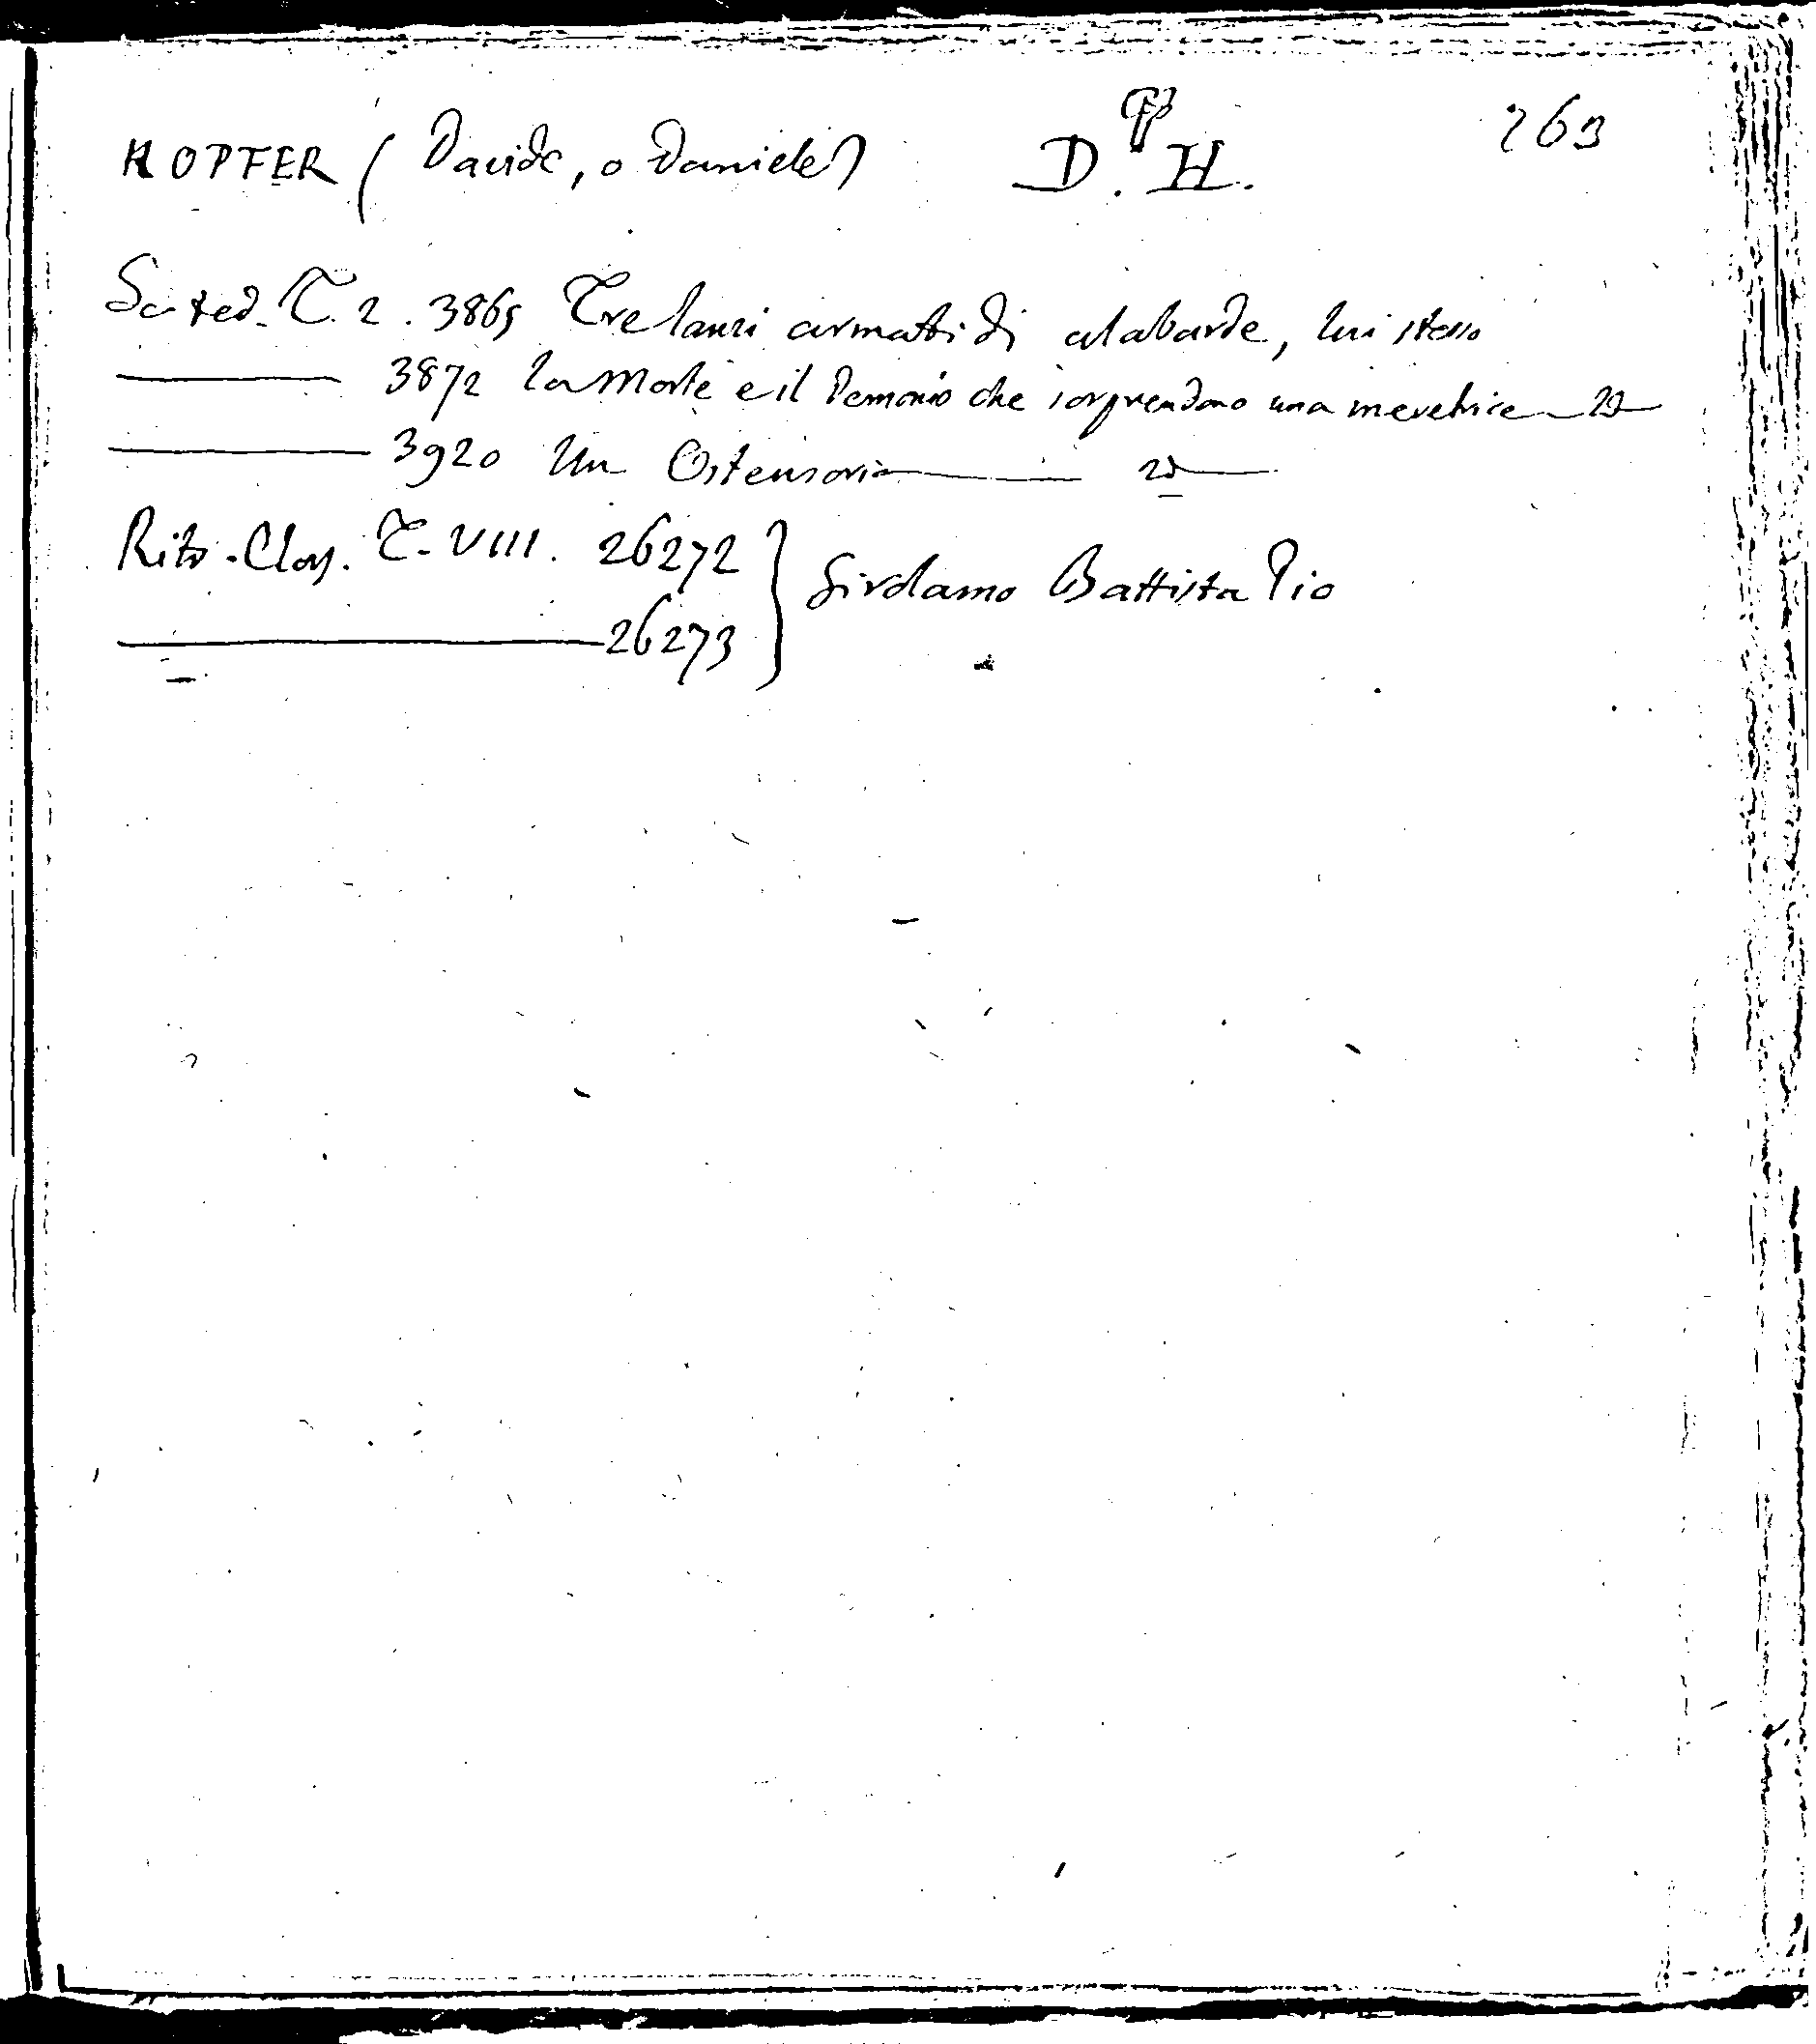 HOPFER (Davide, o Daniele) D. H. 263
Sc. ted. T. 2. 3865 Tre lanzi armati di alabarde, lui stesso
3872 La Morte e il Demonio che sorprendono una meretrice — id
3920 Un Ostensorio — id
Ritr. Clas. T. VIII. 26272 } Girolamo Battista Pio
26273